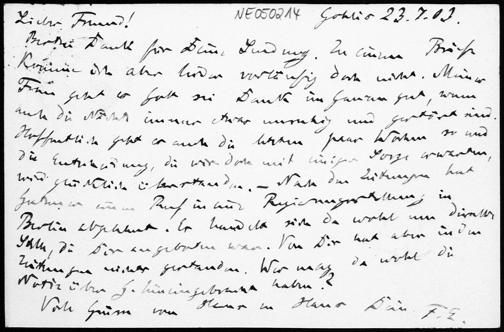 NE050214
Gohlis 23.7.03.
Lieber Freund!
Besten Dank für Deine Sendung. Zu einem Briefe
komme ich aber leider vorläufig doch nicht. Meiner
Frau geht es Gott sei Dank im Ganzen gut, wenn
auch die Nächte immer etwas unruhig und gestört sind.
Hoffentlich geht es auch die letzten paar Wochen so und
die Entbindung, die wir doch mit einiger Sorge erwarten,
wird glücklich überstanden. – Nach den Zeitungen hat
einen Ruf in eine Regierungsstellung in
Berlin abgelehnt. Es handelt sich da wohl um dieselbe
Stelle, die Dir angeboten war. Von Dir hat aber in den
Zeitungen nichts gestanden. Wer mag da wohl die
Notiz über G. hineingebracht haben?
Viele Grüsse von Haus zu Haus Dein F. E.